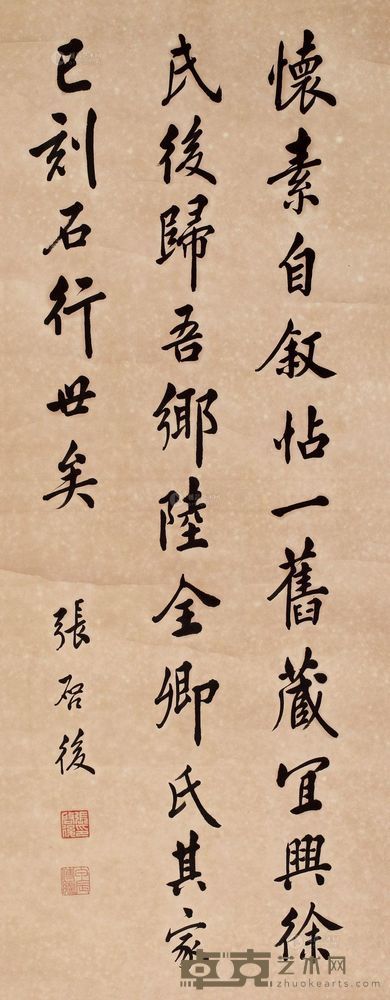 懷素自敘帖一舊藏宜興徐
氏後歸吾鄉陸全卿氏其家
已刻石行世矣
張啓後
卓克艺术网
www.zhuokearts.com